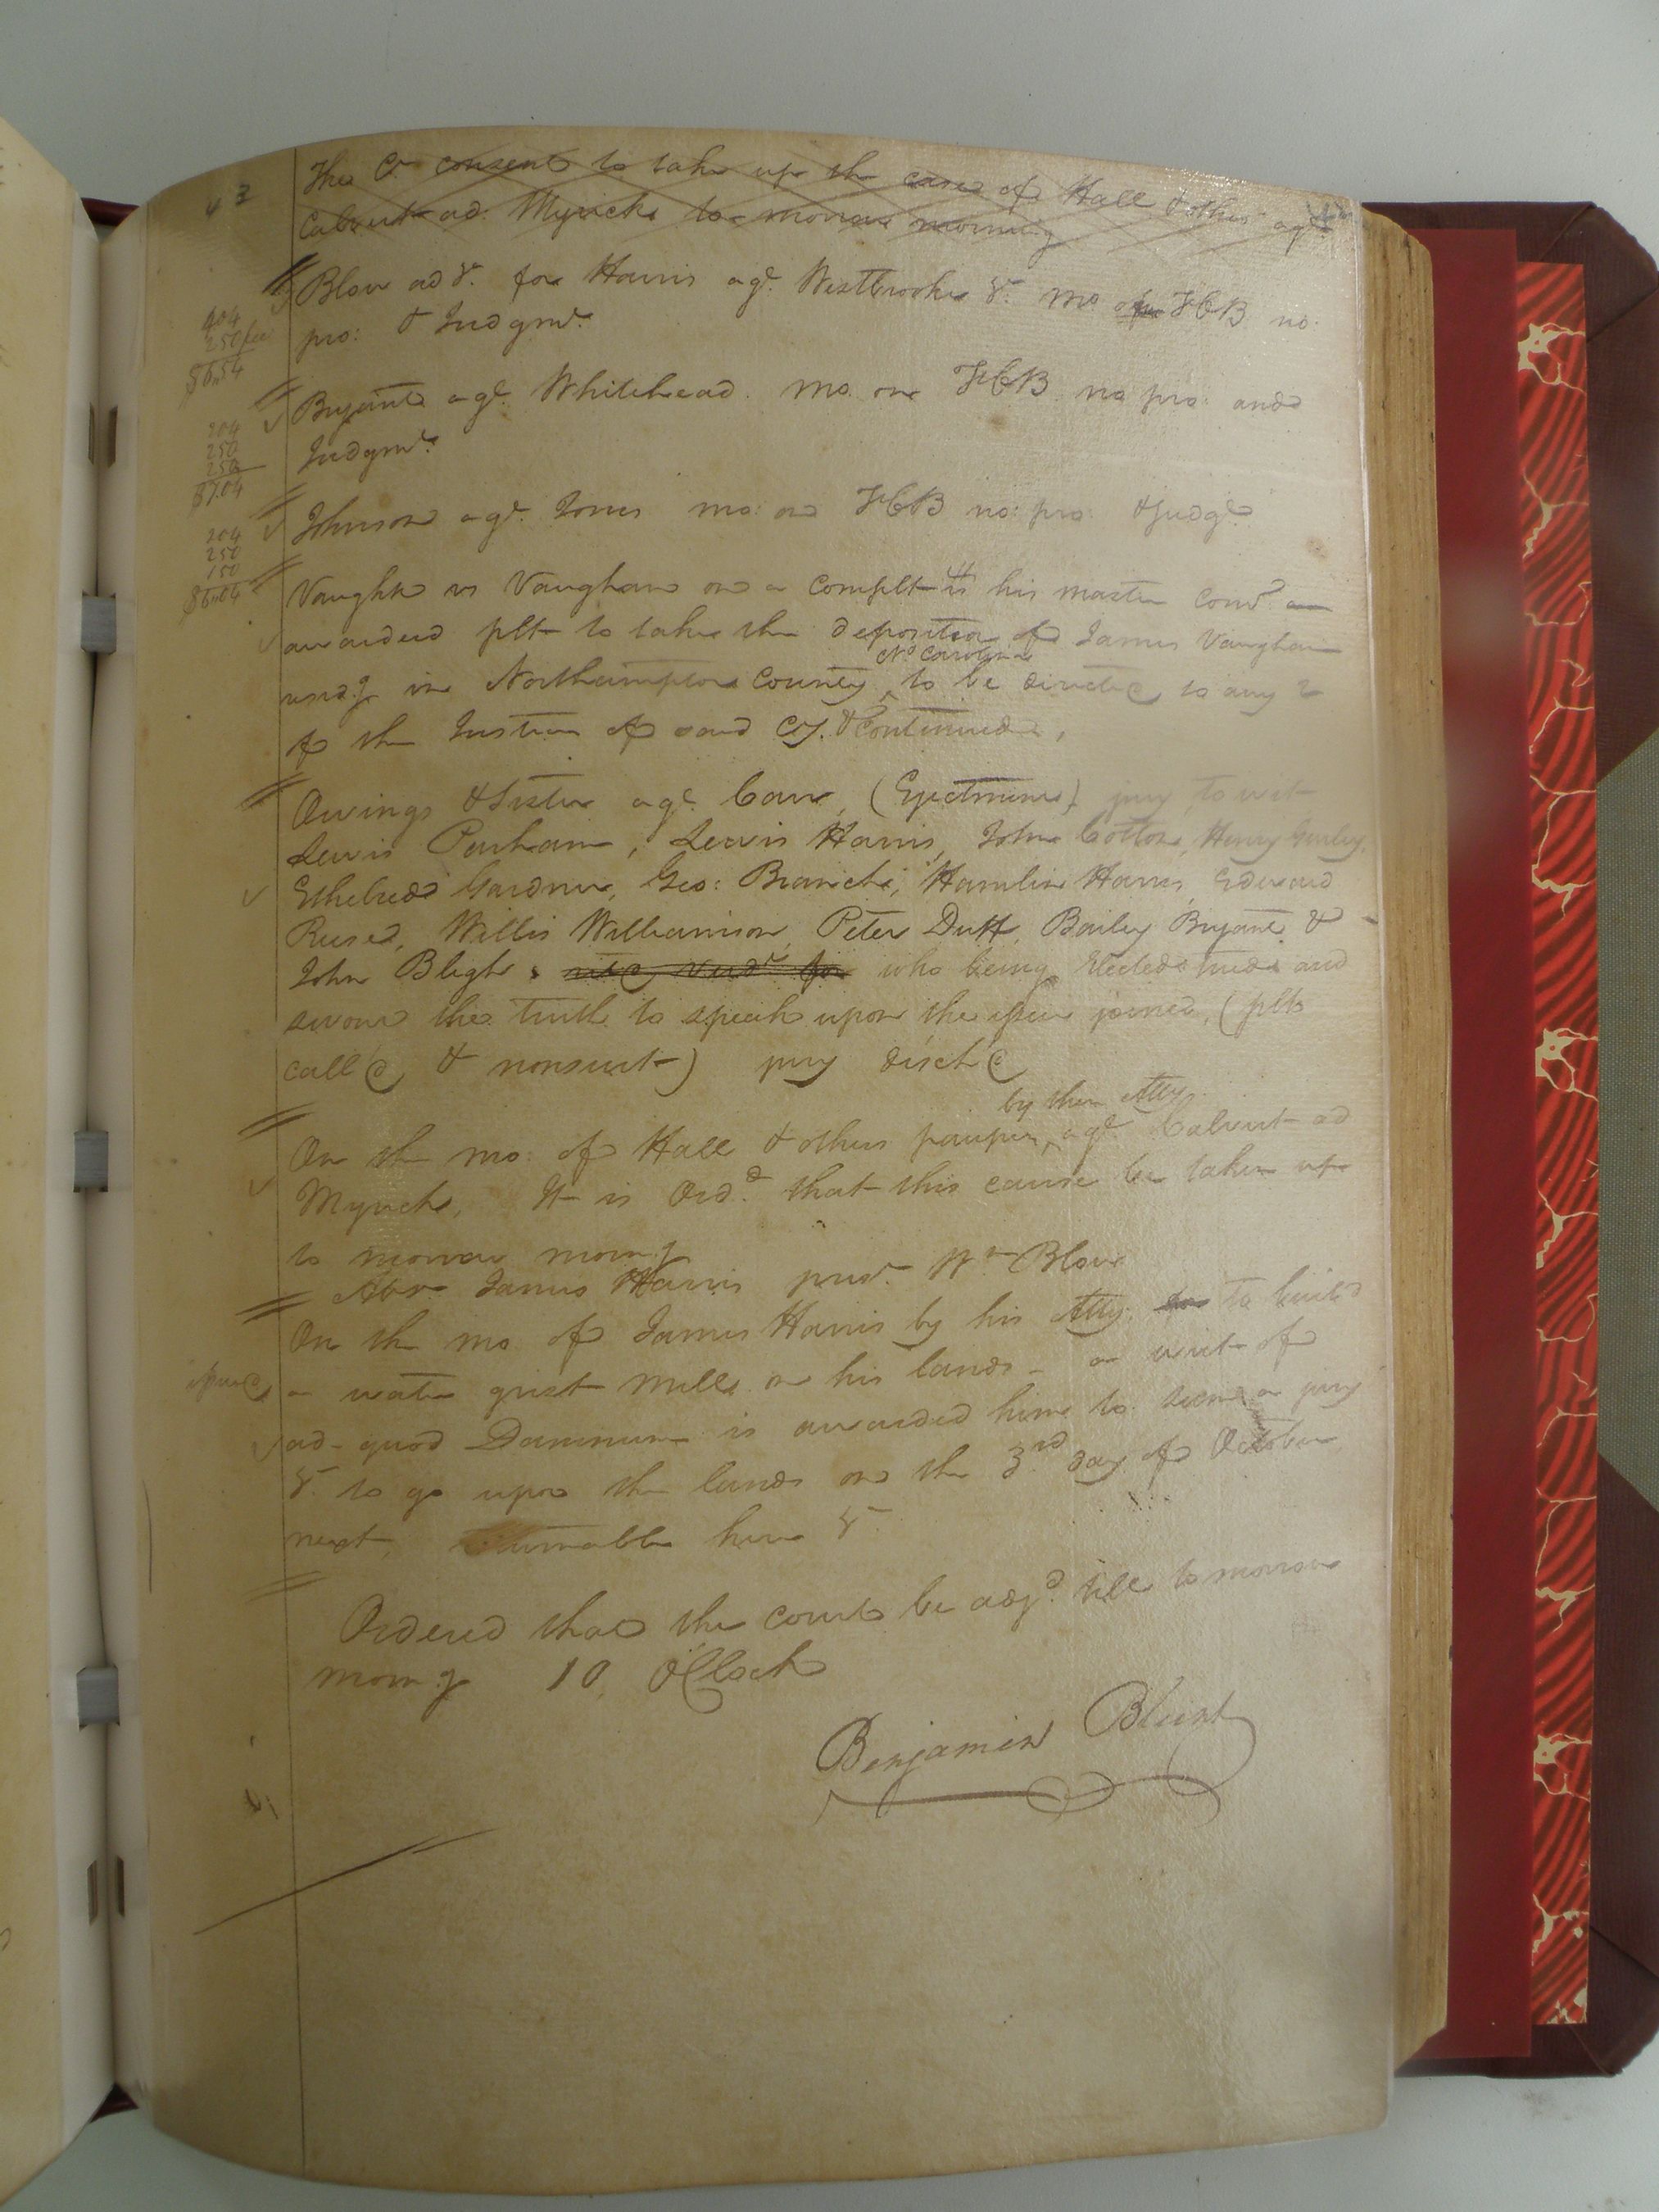 43
The Ct consent to take up the case of Hall & others agt
Calvert ad. Myrick to-morrow morning
Blow ad &c. for Harris agt. Westbrooke &c. mo on FCB no.
pro: & Judgmt.
404
250 fee
$6.54
Bryant agt. Whitehead. mo. on FCB no pro. and
Judgmt.
204
250
250
$7.04
Johnson agt. Jones mo: on FCB no: pro: & Judgt
204
250
150
$6.04
Vaughn vs Vaughan on a complt vs his master Com
awarded plt to take the deposition of James Vaughan
resdg in Northampton County No Carolina to be directed to any 2
of the Justices of said Cty. & Continued.
Owings & Sister agt. Carr, (Ejectment) jury to wit
Lewis Parham, Lewis Harris, John Cotton, Henry Gurley,
Ethelred Gardner, Geo: Branch, Hamlin Harris, Edward
Reese, Willis Williamson, Peter Butt, Bailey Bryant &
John Blegh, who being Elected tried and
sworn the truth to speak upon the issue joined, (plts
call'd & nonsuit) jury disch'd
by their Atty.
On the mo: of Hall & others paupers, agt. Calvert ad
Myrick, It is Ord.d that this cause be taken up
to morrow morng
James Harris Wm Blow
On the mo of James Harris by his Atty. to build
a water grist mill on his lands - a writ of
issued
ad- quod Damnum is awarded him to summon a jury
&c. to go upon the lands on the 3rd day of October
next, returnable here &c
Ordered that the court be adjd. till to morrow
morng 10 OClock
Benjamin Blunt